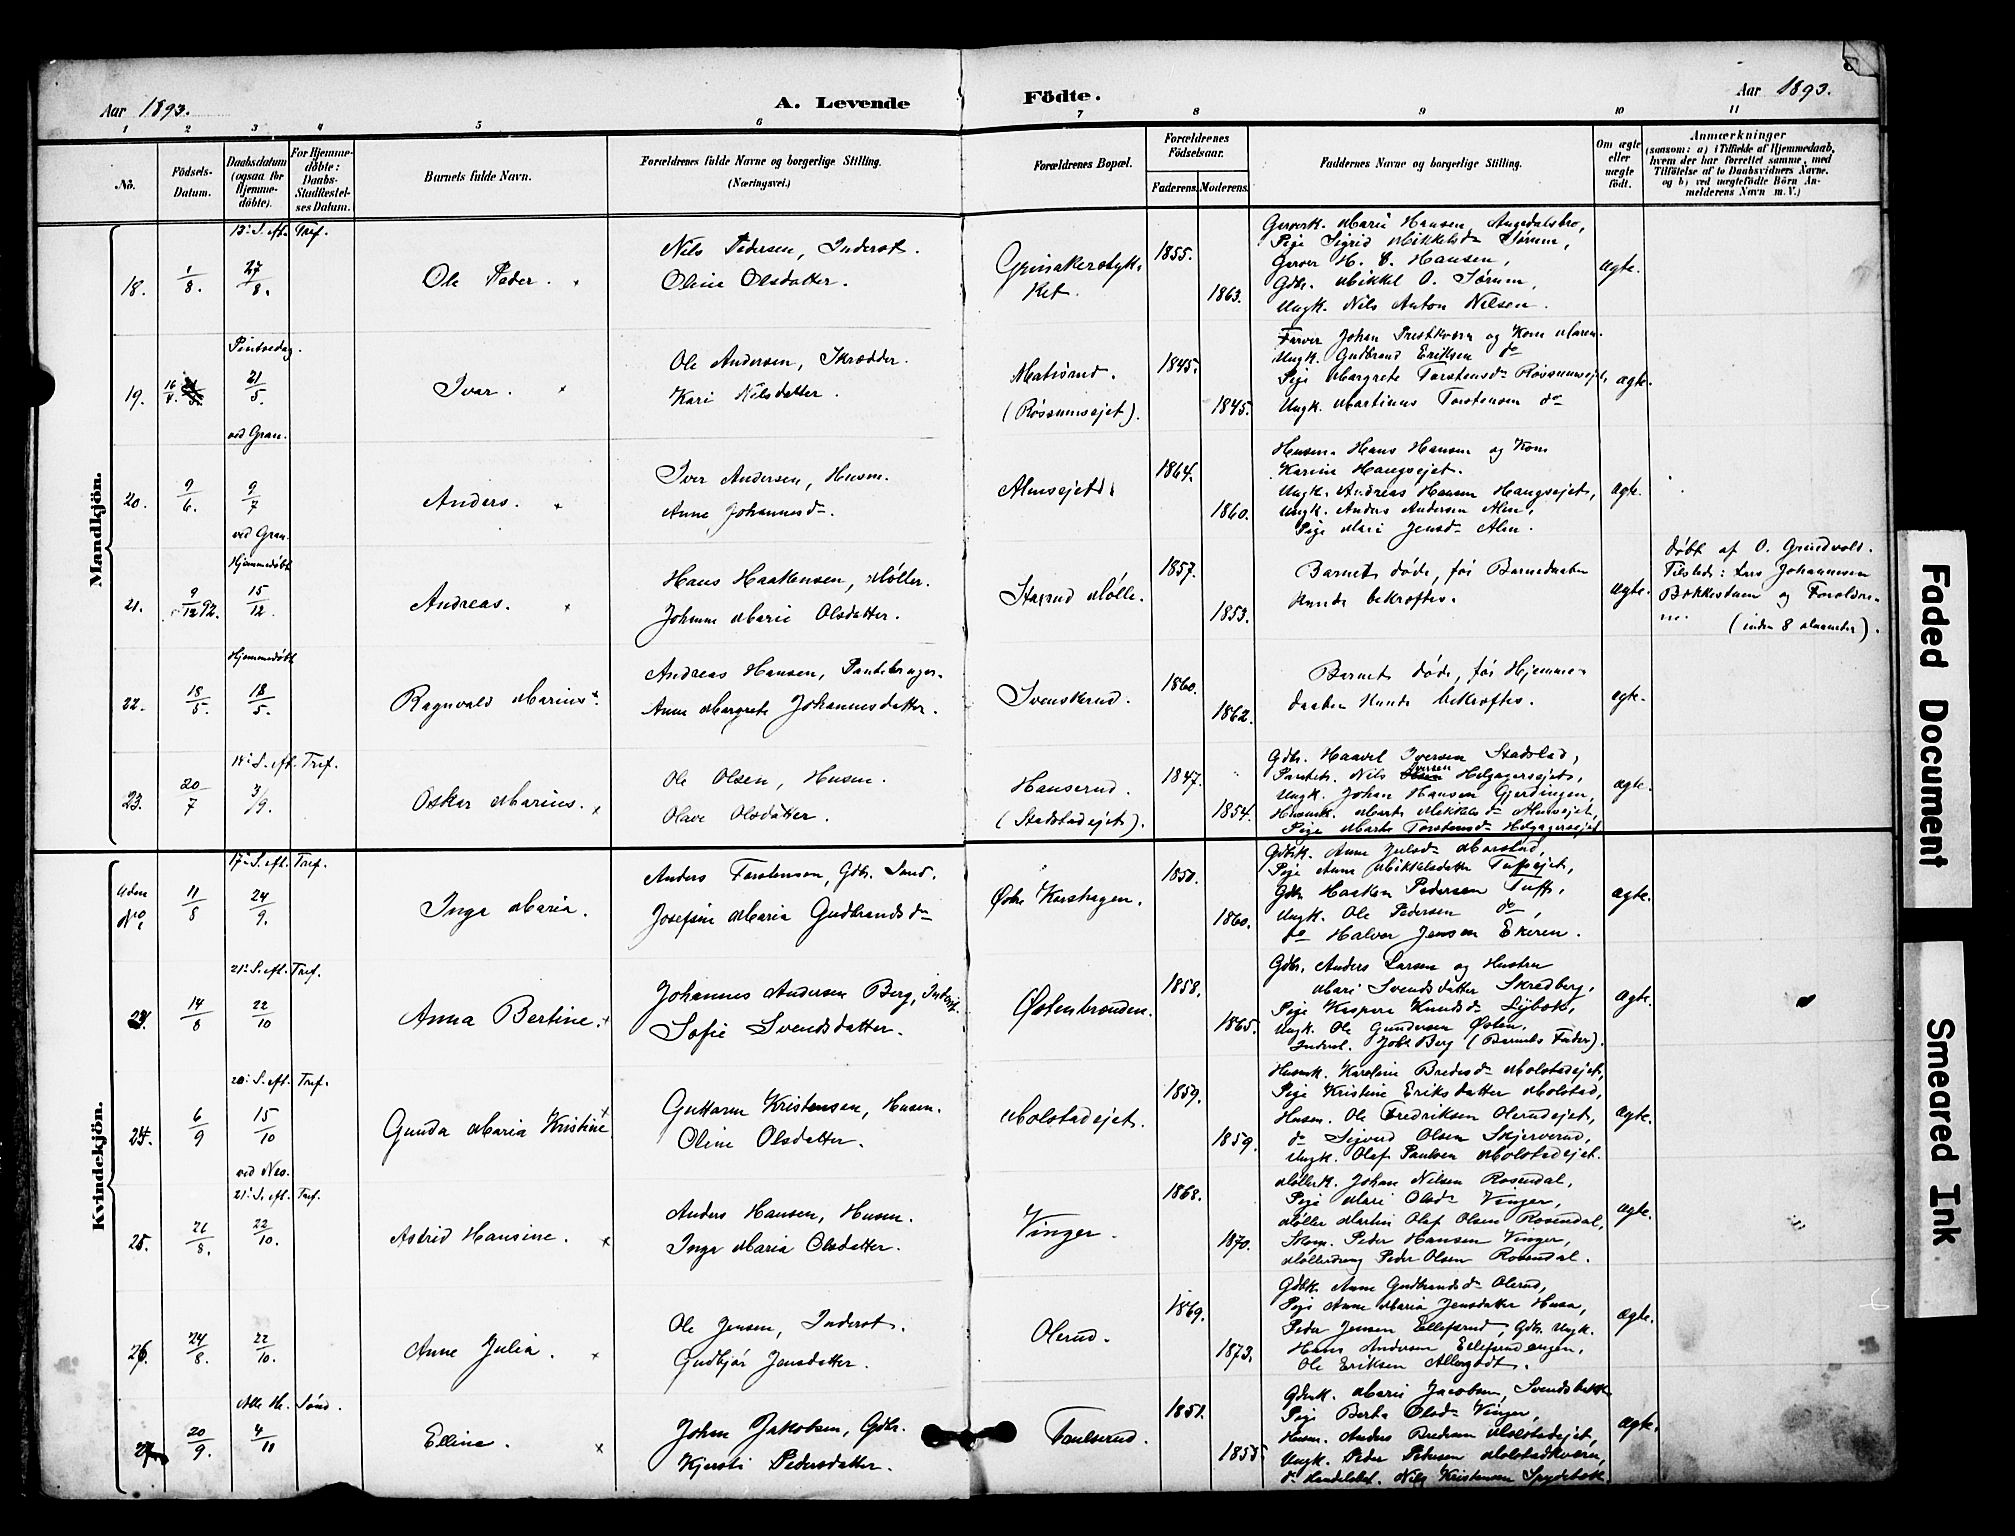 Aar 1893.
A. Levende Födte.
Aar 1893.
1 2 3 4 5 6 7 8 9 10 11
No.
Födsels-Datum.
Daabsdatum (ogsaa for Hjemme-döbte).
For Hjemme-döbte: Daabs-Stadfæstel-ses Datum.
Barnets fulde Navn.
Forældrenes fulde Navne og borgerlige Stilling.
(Næringsvei.)
Forældrenes Bopæl.
Forældrenes Födselsaar.
Faderens. Moderens.
Faddernes Navne og borgerlige Stilling.
Om ægte eller uægte født.
Anmærkninger
(saasom: a) i Tilfælde af Hjemmedaab, hvem der har forrettet samme, med Tilföielse af to Daabsvidners Navne. og b) ved uægtefödte Börn An-melderens Navn m. V.)
Mandkjön.
13. S. eft. Tref.
18. 1/8. 27/8. Ole Peder.
Nils Pedersen, Inderst.
Oline Olsdatter.
Grinakerstyk-
ket.
1855.
1863.
Garverk. Marie Hansen Augedalsbro,
Pige Sigrid Mikkelsd. Sørum,
Garver H. C. Hansen,
Gdbr. Mikkel O. Sørum,
Ungk. Nils Anton Nilsen.
ægte.
Pintsedag.
19. 16/4. 21/5. Ivar.
Ole Andersen, Skrædder.
Kari Nilsdatter.
(Røssumsejet).
1845.
1845.
Farver Johan Prestkværn og Kone Maren.
Ungk. Gudbrand Eriksen do
Pige Margrete Torstensd. Røssumsejet,
Ungk. Martinus Torstensen do
ægte.
ved Gran.
20. 9/6. 9/7 Anders.
Iver Andersen, Husm.
Anne Johannesd.
Almsejet.
1864.
1860.
Husm. Hans Hansen og Kone
Karine Haugsejet.
Ungk. Andreas Hansen Haugsejet,
Ungk. Anders Andersen Alm,
Pige Mari Jensd. Alm.
ægte.
ved Gran.
Hjemmedøbt
21. 9/12 92. 15/12. Andreas.
Hans Haakensen, Møller.
Johanne Marie Olsdatter.
Stasrud Mølle.
1857.
1853.
Barnet døde, før Barnedaaben
kunde bekræftes.
ægte.
døbt af O. Grindvold.
Tilstede: Lars Johannessen
Bakkestuen og Forældre-
ne. (inden 8 Maaneder).
Hjemmedøbt
22. 18/5. 18/5. Ragnvald Marius.
Andreas Hansen, Pantebruger.
Anne Margrete Johannesdatter.
Svenskerud.
1860.
1862.
Barnet døde, før Hjemme-
daaben kunde bekræftes.
ægte.
14. S. eft. Tref.
23. 20/7 3/9. Oskar Marius.
Ole Olsen, Husm.
Olave Olsdatter.
Hanserud.
(Stadstadejet).
1847.
1854.
Gdbr. Haavel Iversen Stadstad,
Nils Iversen Helgagersejet,
Ungk. Johan Hansen Gjerdingen,
Husmk. Marte Mikkelsd. Almsejet,
Pige Marte Torstensd. Helgagersejet
ægte.
Kvindekjön.
17. S. eft. Tref.
Uden No. 11/8 24/9. Inga Maria.
Anders Torstensen, Gdbr. Sand.
Josefine Maria Gudbrandsd.
Østre Korshagen.
1850.
1860.
Gdbrk. Anne Juelsd. Morstad,
Pige Anne Mikkelsdatter Tuffsejet,
Gdbr. Haaken Pedersen Tuff,
Ungk. Ole Pedersen do,
do Halvor Jensen Ekeren.
ægte.
21. S. eft. Tref.
23. 14/8 22/10 Anna Bertine.
Johannes Andersen Berg, Inderst.
Sofie Svendsdatter.
Østenbraaden.
1858.
1865.
Gdbr. Anders Larsen og Hustru
Mari Svendsdatter Skredberg,
Pige Kaspera Knudsd. Lybæk,
Ungk. Ole Gundersen Østen,
Inderst. Joh. Berg (Barnets Fader).
ægte.
20. S. eft. Tref.
24. 6/9 15/10 Gunda Maria Kristine
Guttorm Kristensen, Husm.
Oline Olsdatter.
Molstadejet.
1859.
1859.
Husmk. Karoline Bredesd. Molstadejet,
Pige Kristine Eriksdatter Molstad,
Husm. Ole Fredriksen Olerudsejet,
do Sigvard Olsen Skjerverud,
Ungk. Olaf Paulsen Molstadejet.
ægte.
ved Nes.
21. S. eft. Tref.
25. 21/8. 22/10. Astrid Hansine.
Anders Hansen, Husm.
Inga Maria Olsdatter.
Vinger.
1868.
1870.
Møllerk. Johan Nilsen Rosendal,
Pige Mari Olsd. Vinger,
Møller Martin Olaf Olsen Rosendal,
Skom. Peder Hansen Vinger,
Møllerdreng Peder Olsen Rosendal.
ægte.
26. 24/8. 22/10. Anne Julia.
Ole Jensen, Inderst.
Gudbjør Jensdatter.
Olerud.
1869.
1873.
Gdbk. Anne Gudbrandsd. Olerud,
Pige Anne Maria Jensdatter Husa,
Peder Jensen Ellefsrud, Gdbr. Ungk.
Hans Andersen Ellefsrudengen,
Ole Eriksen
ægte.
Alle He. Sönd.
27. 20/9. 4/11 Elline.
Johan Jakobsen, Gdbr.
Kjersti Pedersdatter.
Paulserud.
1851.
1855.
Gdbrk. Marie Jacobsen, Svendsbakken
Pige Berta Olsd. Vinger,
Husm. Anders Bredesen Molstadejet,
Ungk. Peder Pedersen Molstadkværn,
do Handelsbet. Nils Kristensen Spydebæk
ægte.
Faded Document
Smeared Ink